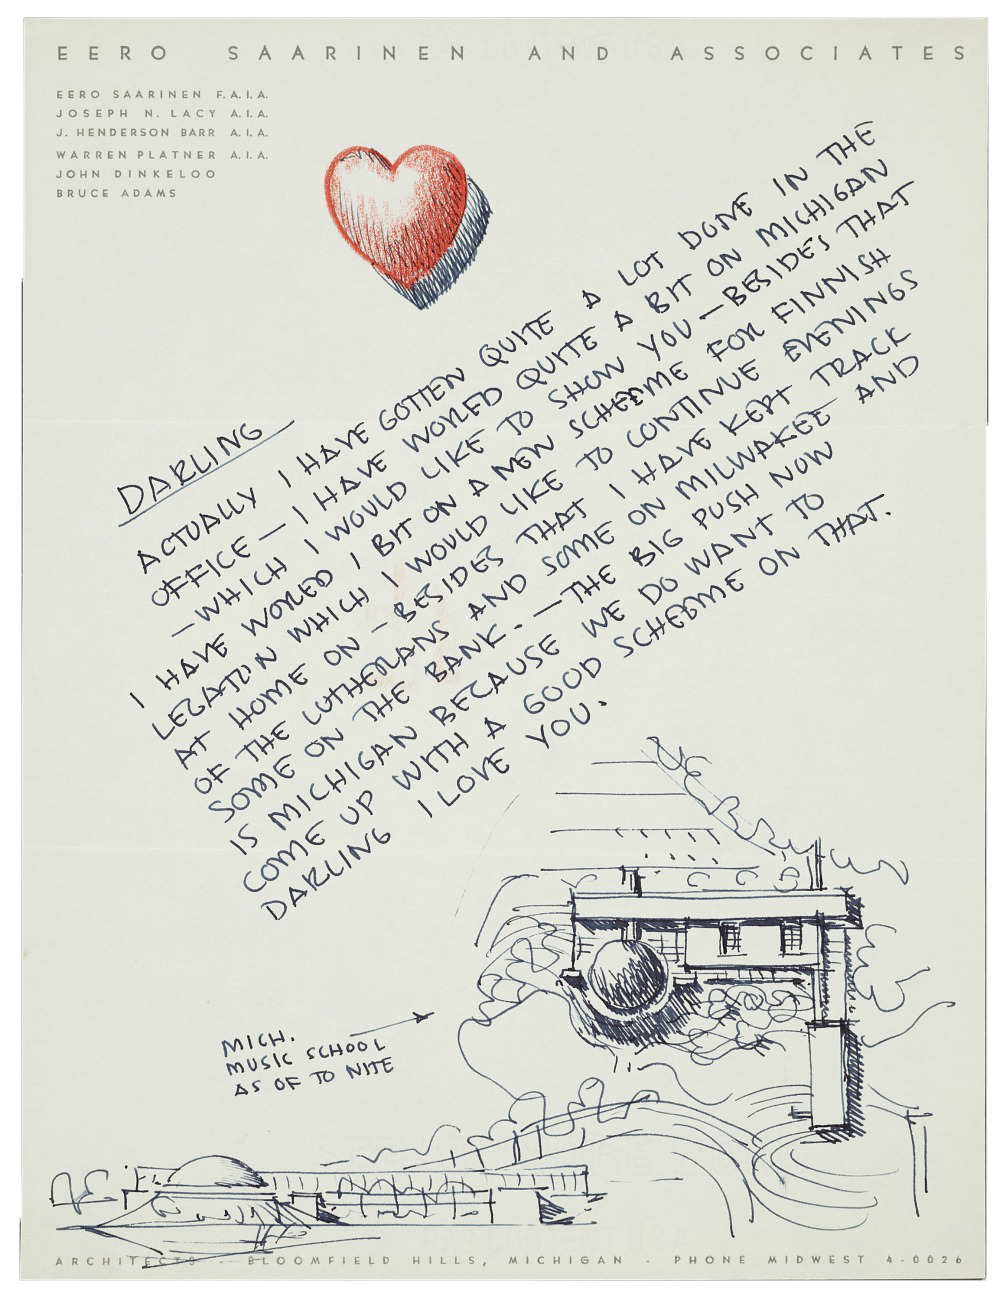 EERO SAARINEN AND ASSOCIATES
EERO SAARINEN F.A.I.A.
JOSEPH N. LACY A.I.A.
J. HENDERSON BARR A.I.A.
WARREN PLATNER A.I.A.
JOHN DINKELOO
BRUCE ADAMS
DARLING
ACTUALLY I HAVE GOTTEN QUITE A LOT DONE IN THE
OFFICE — I HAVE WORKED QUITE A BIT ON MICHIGAN
— WHICH I WOULD LIKE TO SHOW YOU — BESIDES THAT
I HAVE WORKED I BIT ON A NEW SCHEEME FOR FINNISH
LEGATION WHICH I WOULD LIKE TO CONTINUE EVENINGS
AT HOME ON — BESIDES THAT I HAVE KEPT TRACK
OF THE LUTHERANS AND SOME ON MILWAKEE AND
SOME ON THE BANK. — THE BIG PUSH NOW
IS MICHIGAN BECAUSE WE DO WANT TO
COME UP WITH A GOOD SCHEEME ON THAT.
DARLING I LOVE YOU.
MICH.
MUSIC SCHOOL
AS OF TO NITE
ARCHITECTS - BLOOMFIELD HILLS, MICHIGAN - PHONE MIDWEST 4-0026